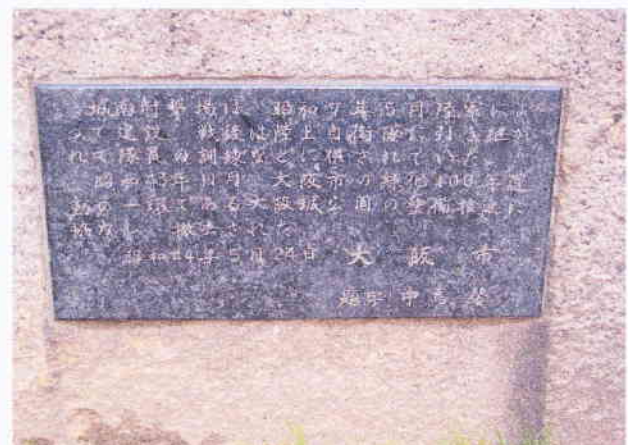 城南射撃場は 昭和7年5月陸軍によ
って建設 戦後は陸上自衛隊に引き継が
れて隊員の訓練などに供されていたが
昭和43年 月大阪市の緑化100年運
動の一環である大阪城公園の整備推進に
協力し 撤去された
昭和44年5月24日 大阪市
題字 中馬馨